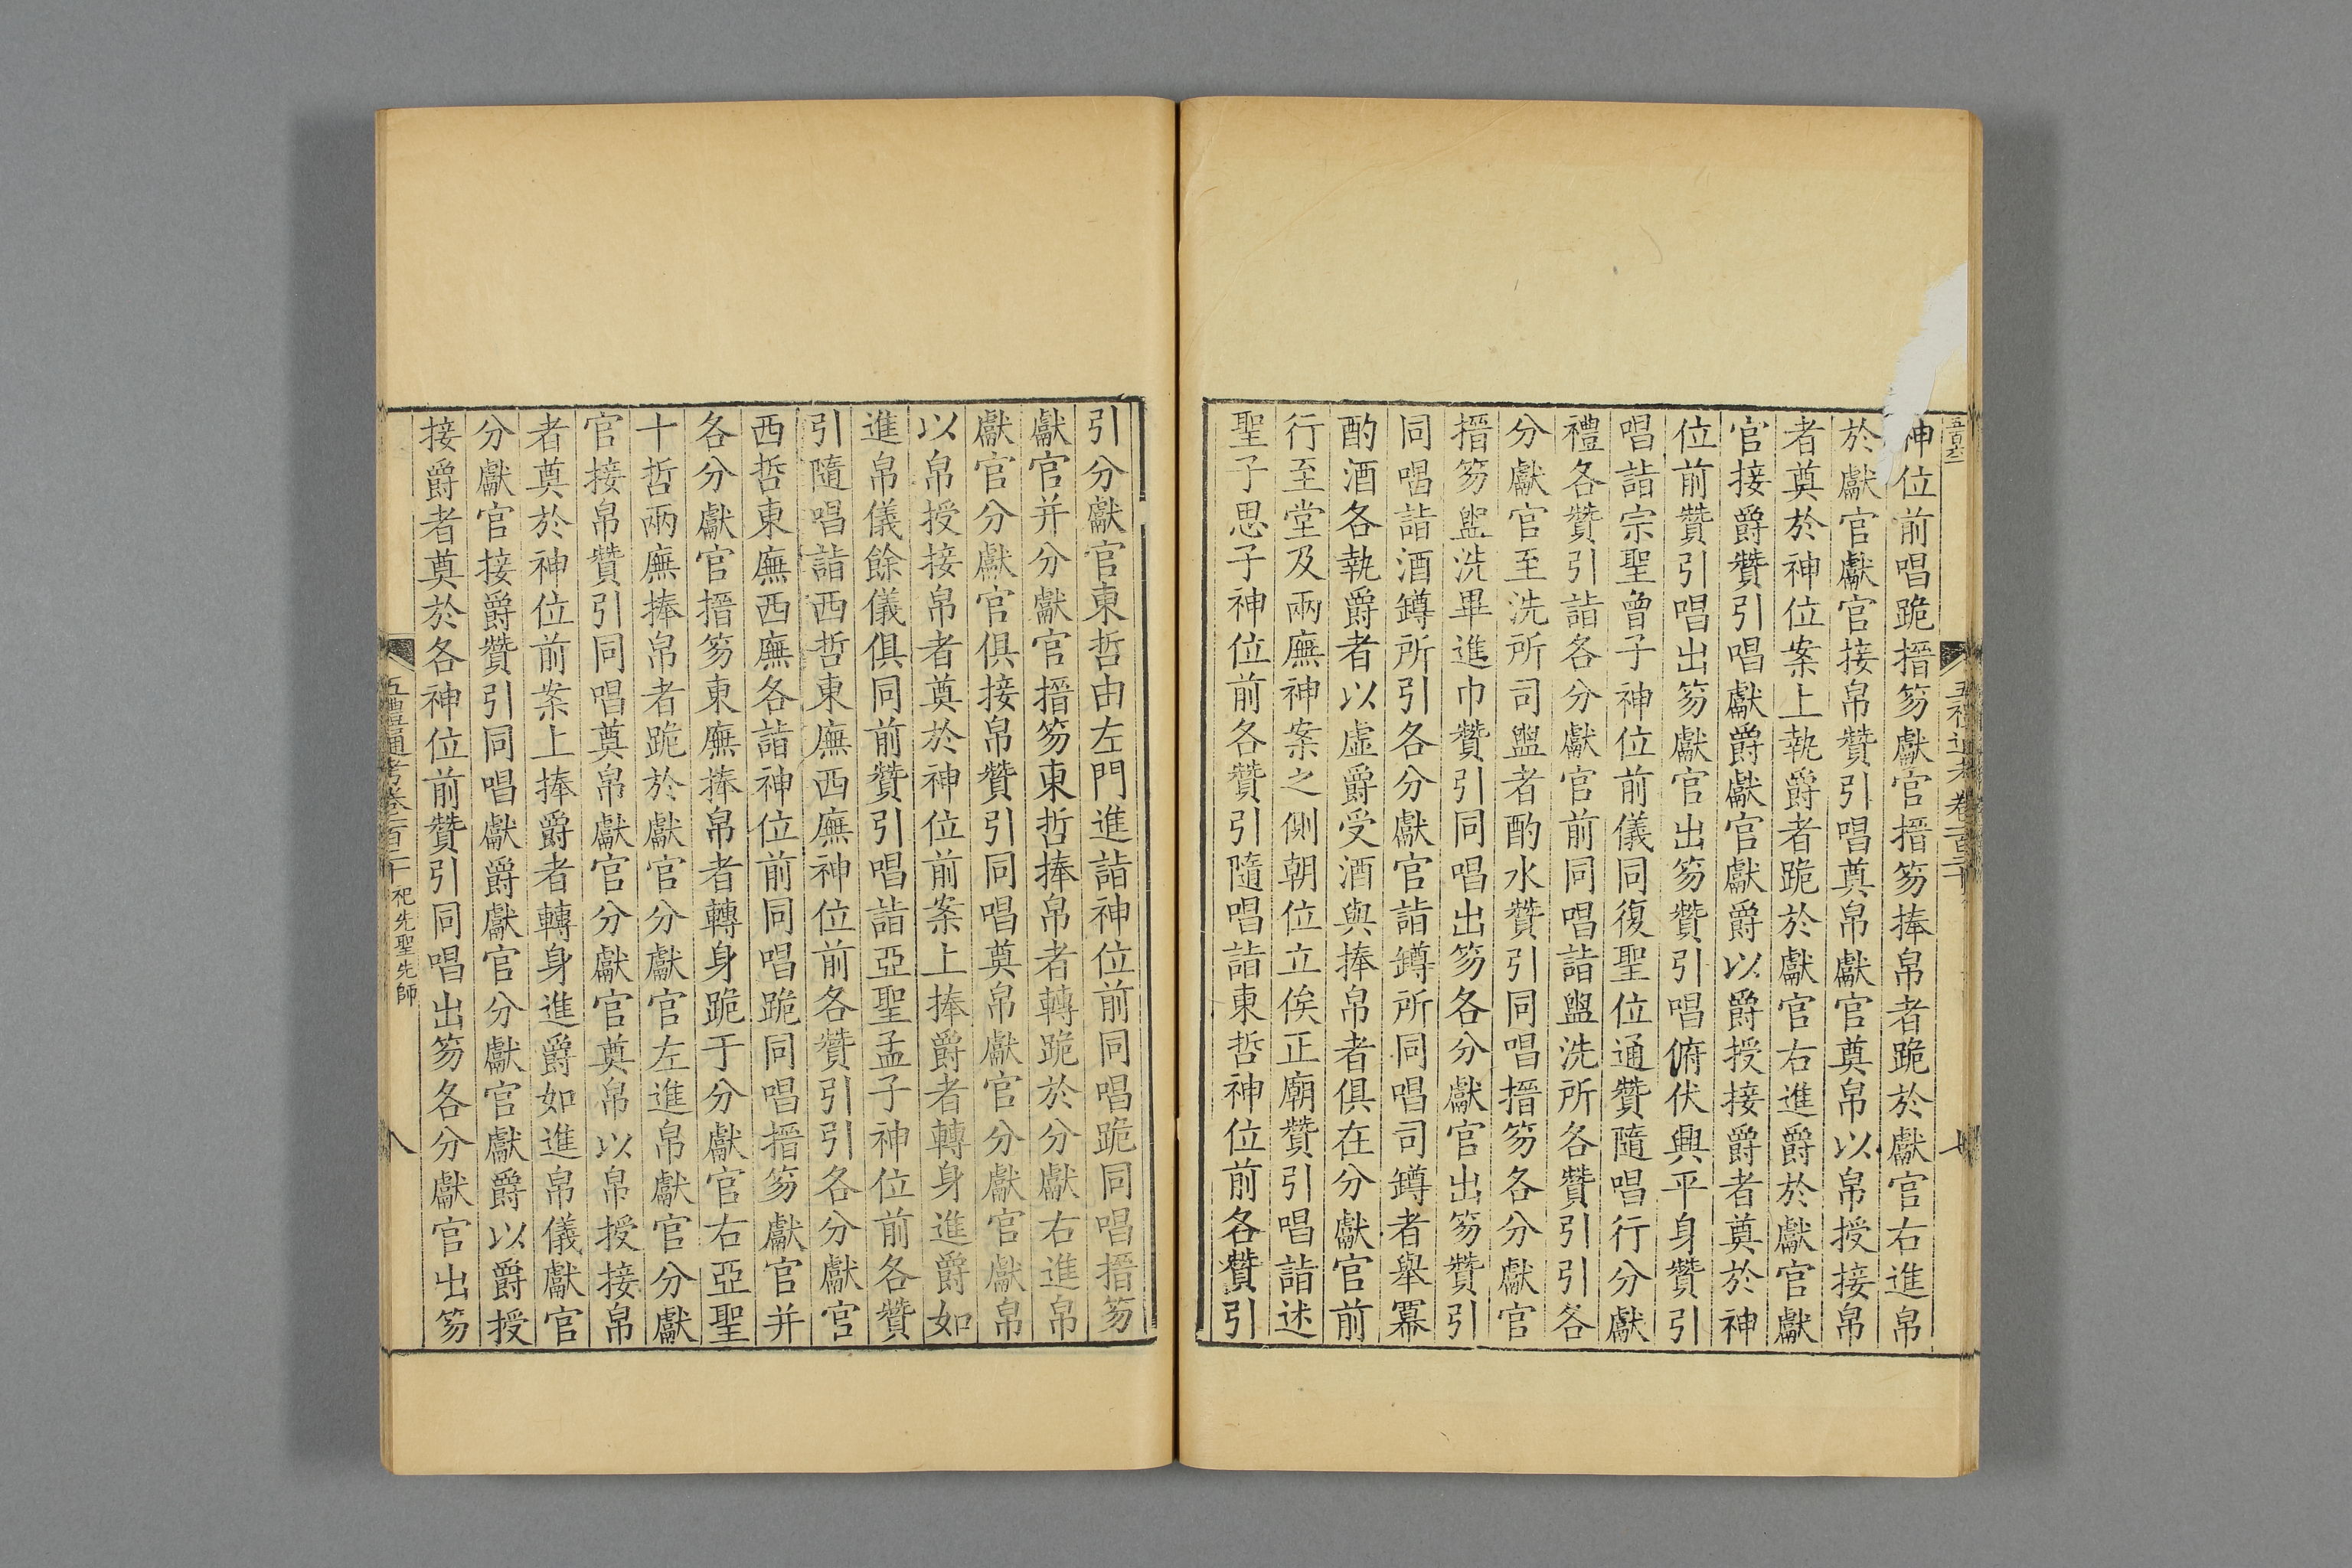 神位前唱跪搢笏獻官搢笏捧帛者跪於獻官右進帛
於獻官獻官接帛贊引唱奠帛獻官奠帛以帛授接帛
者奠於神位案上執爵者跪於獻官右進爵於獻官獻
官接爵贊引唱獻爵獻官獻爵以爵授接爵者奠於神
位前贊引唱出笏獻官出笏贊引唱俯伏興平身贊引
唱詣宗聖曾子神位前儀同復聖位通贊隨唱行分獻
禮各贊引詣各分獻官前同唱詣盥洗所各贊引引各
分獻官至洗所司盥者酌水贊引同唱搢笏各分獻官
搢笏盥洗畢進巾贊引同唱出笏各分獻官出笏贊引
同唱詣酒罇所引各分獻官詣罇所同唱司罇者舉冪
酌酒各執爵者以虛爵受酒與捧帛者俱在分獻官前
行至堂及兩廡神案之側朝位立俟正廟贊引唱詣述
聖子思子神位前各贊引隨唱詣東哲神位前各贊引
引分獻官東哲由左門進詣神位前同唱跪同唱搢笏
獻官并分獻官搢笏東哲捧帛者轉跪於分獻右進帛
獻官分獻官俱接帛贊引同唱奠帛獻官分獻官獻帛
以帛授接帛者奠於神位前案上捧爵者轉身進爵如
進帛儀餘儀俱同前贊引唱詣亞聖孟子神位前各贊
引隨唱詣西哲東廡西廡神位前各贊引引各分獻官
西哲東廡西廡各詣神位前同唱跪同唱搢笏獻官并
各分獻官搢笏東廡捧帛者轉身跪于分獻官右亞聖
十哲兩廡捧帛者跪於獻官分獻官左進帛獻官分獻
官接帛贊引同唱奠帛獻官分獻官奠帛以帛授接帛
者奠於神位前案上捧爵者轉身進爵如進帛儀獻官
分獻官接爵贊引同唱獻爵獻官分獻官獻爵以爵授
接爵者奠於各神位前贊引同唱出笏各分獻官出笏
五禮通考卷一百二十 祀先聖先師
八